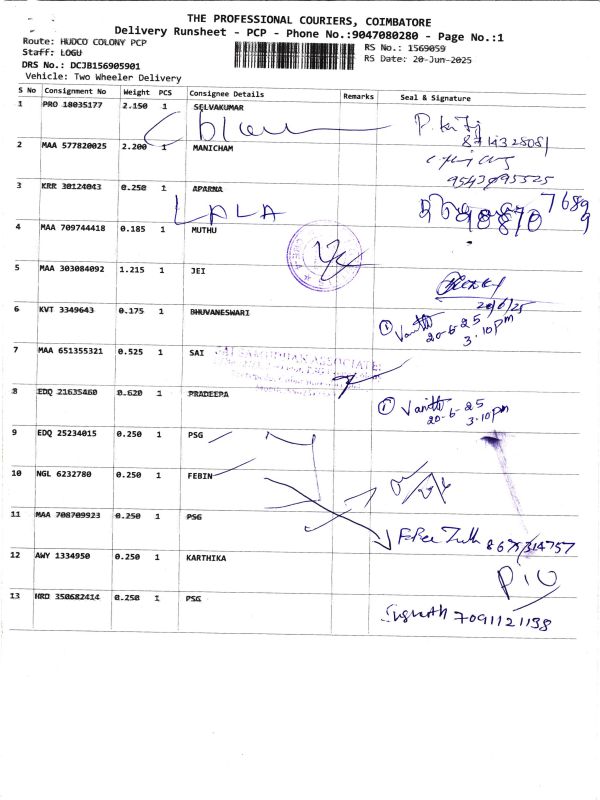 THE PROFESSIONAL COURIERS, COIMBATORE
Delivery Runsheet - PCP - Phone No.:9047080280 - Page No.:1
Route: HUDCO COLONY PCP
RS No.: 1569059
Staff: LOGU
RS Date: 20-Jun-2025
DRS No.: DCJB156905901
Vehicle: Two Wheeler Delivery
S No Consignment No Weight PCS Consignee Details Remarks Seal & Signature
1 PRO 18035177 2.150 1 SELVAKUMAR
2 MAA 577820025 2.200 1 MANICHAM
3 KRR 30124043 0.250 1 APARNA
LALA
4 MAA 709744418 0.185 1 MUTHU
5 MAA 303084092 1.215 1 JEI
20/6/25
6 KVT 3349643 0.175 1 BHUVANESWARI
20-6-25
3.10pm
7 MAA 651355321 0.525 1 SAI
8 EDQ 21635460 0.620 1 PRADEEPA
20-6-25
3.10pm
9 EDQ 25234015 0.250 1 PSG
10 NGL 6232780 0.250 1 FEBIN
11 MAA 708709923 0.250 1 PSG
12 AWY 1334950 0.250 1 KARTHIKA
13 HRD 350682414 0.250 1 PSG
7091121138